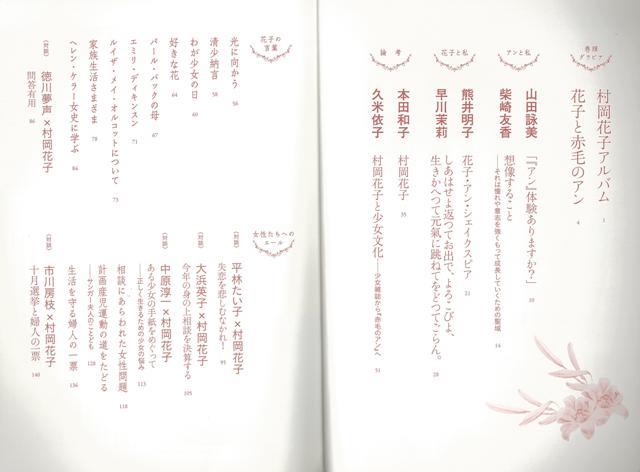 巻頭
グラビア
村岡花子アルバム 1
花子と赤毛のアン 4
アンと私
山田詠美 「『アン』体験ありますか?」 10
柴崎友香 想像すること
――それは憧れや意志を強くもって成長していくための聖域 14
花子と私
熊井明子 花子・アン・シェイクスピア 21
早川茉莉 しあはせよ返つてお出で、よろこびよ、
生きかへつて元氣に跳ねてをどつてごらん。 28
論考
本田和子 村岡花子 35
久米依子 村岡花子と少女文化――少女雑誌から『赤毛のアン』へ 51
花子の
言葉
光に向かう 56
清少納言 58
わが少女の日 60
好きな花 64
パール・バックの母 67
エミリ・ディキンスン 71
ルイザ・メイ・オルコットについて 73
家族生活さまざま 78
ヘレン・ケラー女史に学ぶ 84
〈対談〉 徳川夢声×村岡花子
問答有用 86
女性たちへの
エール
〈対談〉 平林たい子×村岡花子
失恋を悲しむなかれ! 95
〈対談〉 大浜英子×村岡花子
今年の身の上相談を決算する 105
〈対談〉 中原淳一×村岡花子
ある少女の手紙をめぐって
――正しく生きるための少女の悩み 113
相談にあらわれた女性問題 118
計画産児運動の道をたどる
――サンガー夫人のことども 128
生活を守る婦人の一票 136
〈対談〉 市川房枝×村岡花子
十月選挙と婦人の一票 140